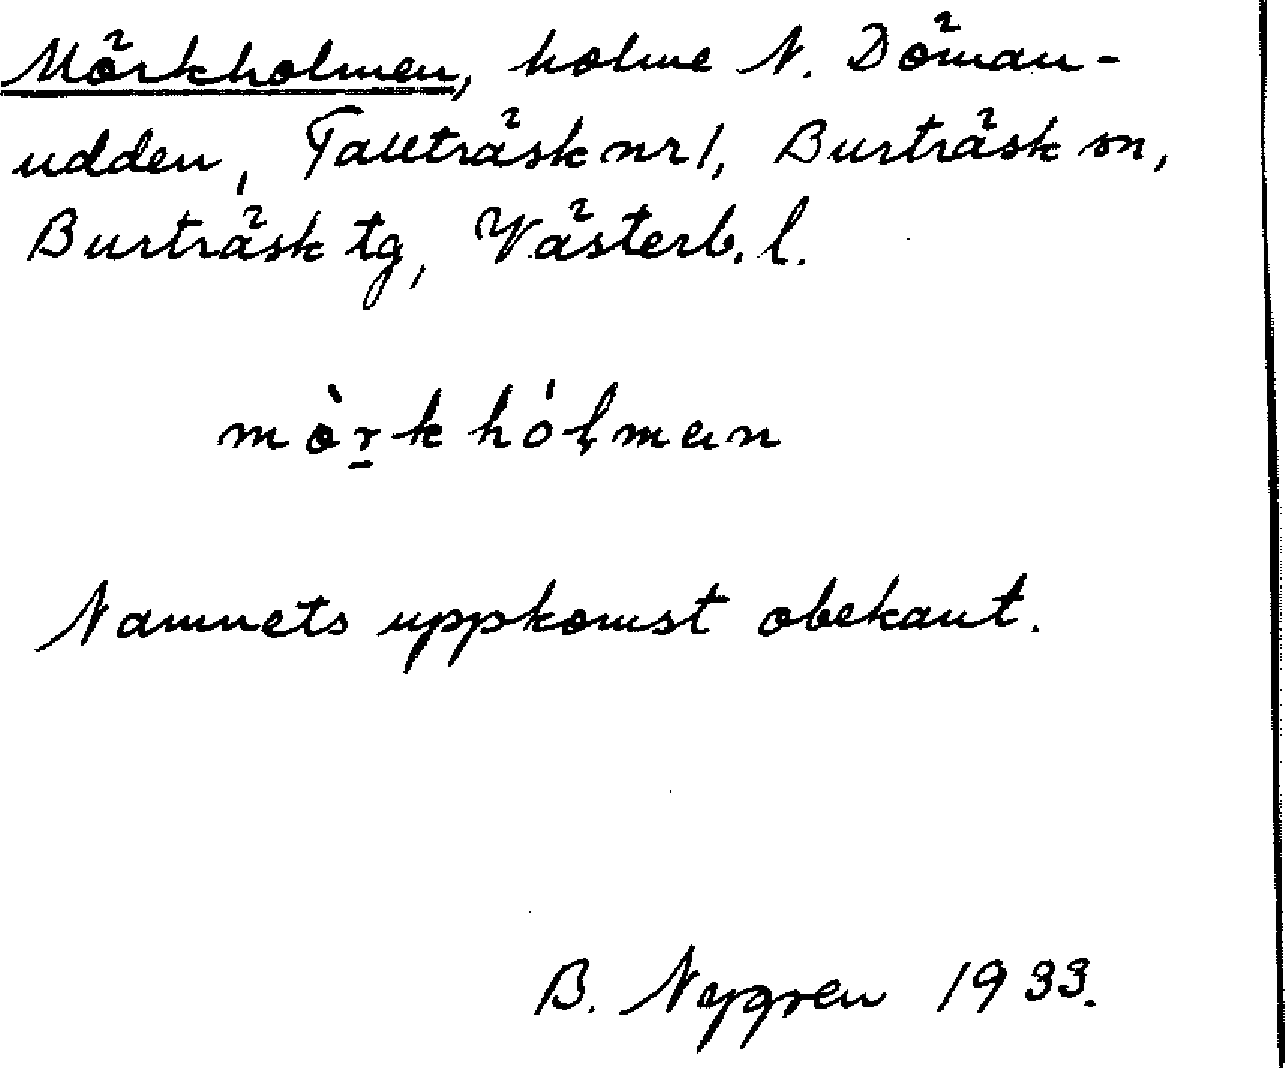 Mörkholmen, holme N. Döman-
udden, Tallträsk nr 1, Burträsk sn,
Burträsk tg, Västerb. l.
mòrkhólmen
Namnets uppkomst obekant.
B. Nygren 1933.